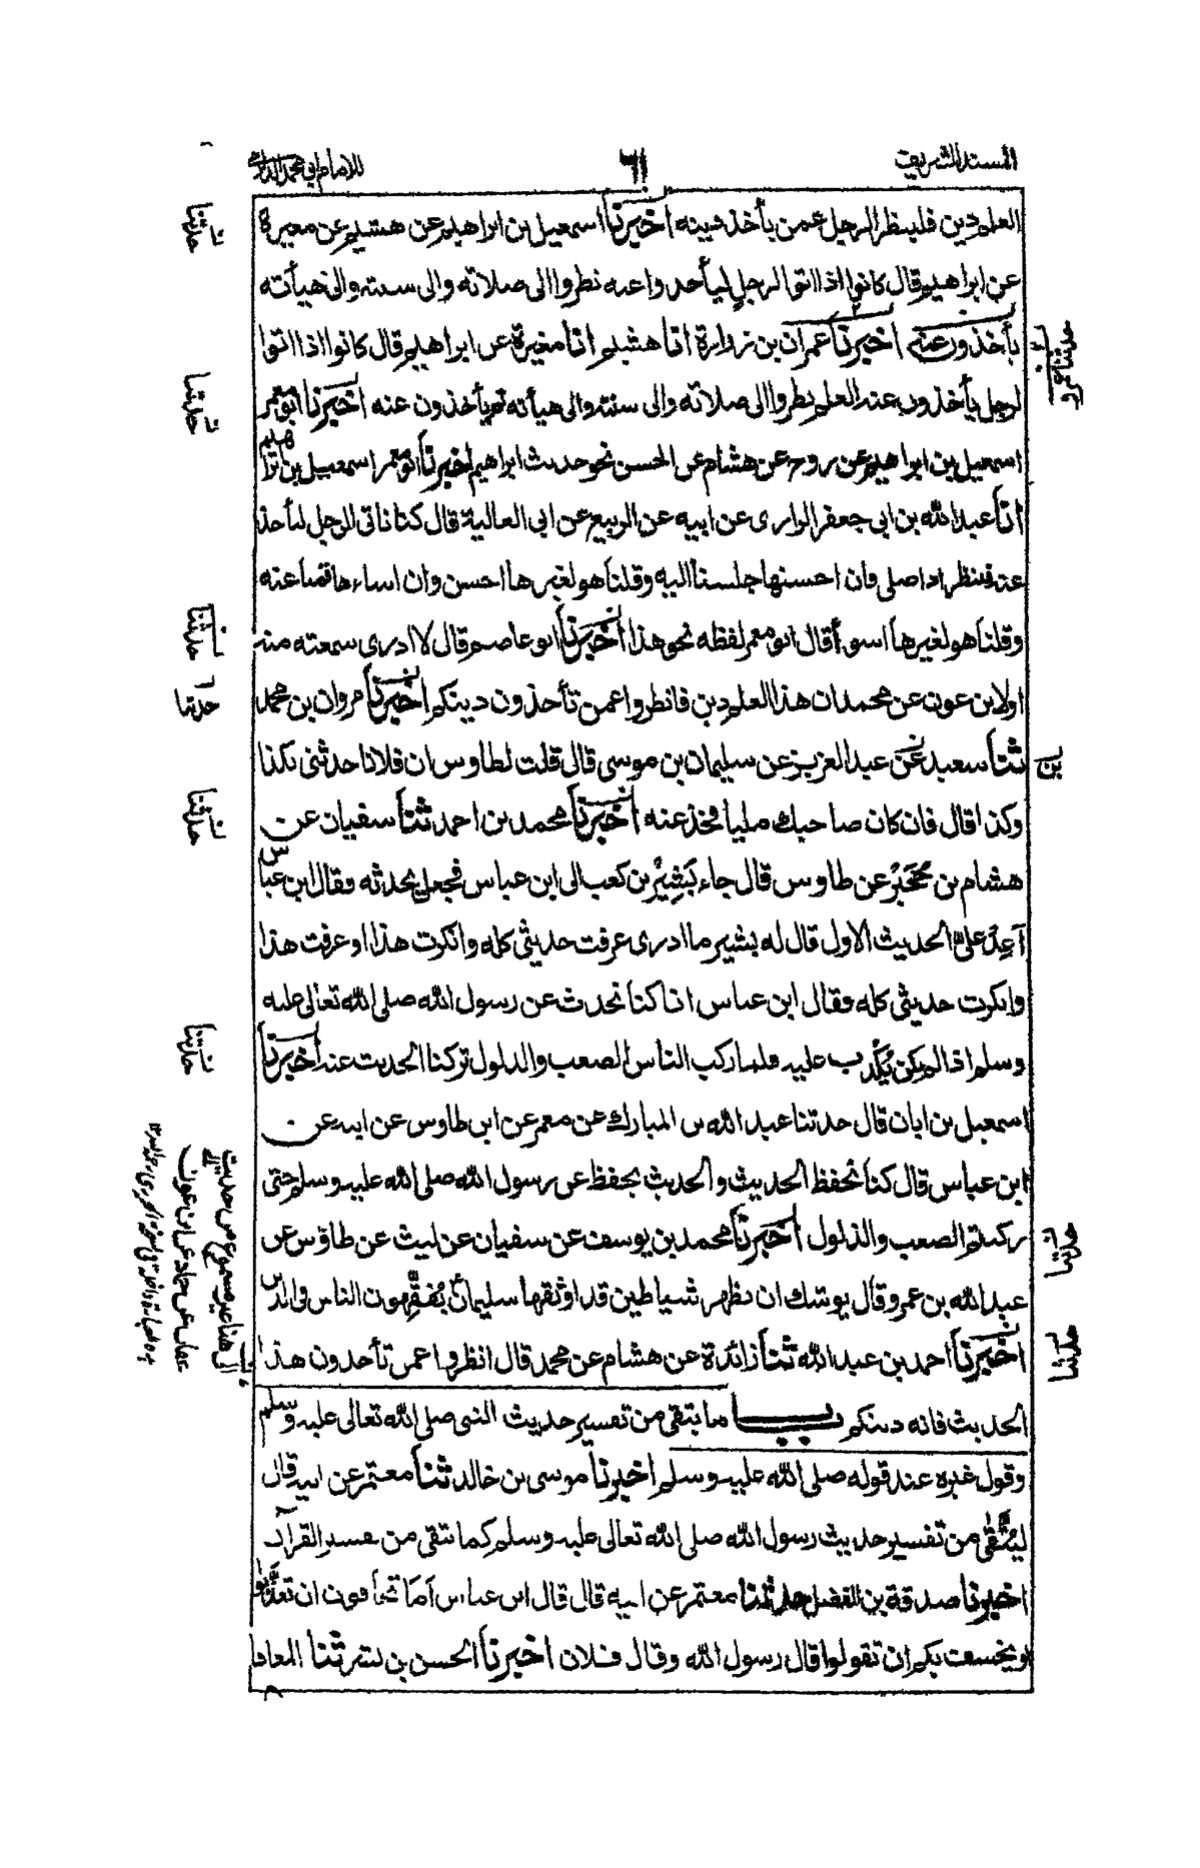 المسند الشريف
٦١
للامام ابي محمد الدارمي
العلم دين فلينظر الرجل عمن يأخذ دينه اخبرنا اسمعيل بن ابراهيم عن هشيم عن مغيرة
عن ابراهيم قال كانوا اذا اتوا الرجل ليأخذوا عنه نظروا الى صلاته والى سنته والى هيأته
يأخذون عنه اخبرنا عمران بن زرارة انا هشيم انا مغيرة عن ابراهيم قال كانوا اذا اتوا
لرجل يأخذون عنه العلم نظروا الى صلاته والى سنته والى هيأته ثم يأخذون عنه اخبرنا ابو معمر
اسمعيل بن ابراهيم عن روح عن هشام عن الحسن نحو حديث ابراهيم اخبرنا ابو معمر اسمعيل بن ابراهيم
انا عبد الله بن ابي جعفر الرازى عن ابيه عن الربيع عن ابي العالية قال كنا ناتي الرجل لنأخذ
عنه فننظر اذا صلى فان احسنها جلسنا اليه وقلنا هو لغيرها احسن وان اساءها قمنا عنه
وقلنا هو لغيرها اسوأ قال ابو معمر لفظه نحو هذا اخبرنا ابو عاصم قال لا ادرى سمعته منه
اولا بن عون عن محمد ان هذا العلم دين فانظروا عمن تأخذون دينكم اخبرنا مروان بن محمد
ثنا سعيد عن عبد العزيز عن سليمان بن موسى قال قلت لطاوس ان فلانا حدثنى بكذا
وكذا قال فان كان صاحبك مليا فخذ عنه اخبرنا محمد بن احمد ثنا سفيان عن
هشام بن حجير عن طاوس قال جاء بشير بن كعب الى ابن عباس فجعل يحدثه فقال ابن عباس
أعد على الحديث الاول قال له بشير ما ادرى عرفت حديثي كله وانكرت هذا او عرفت هذا
وانكرت حديثي كله فقال ابن عباس انا كنا نحدث عن رسول الله صلى الله تعالى عليه
وسلم اذ لم يكن يكذب عليه فلما ركب الناس الصعب والذلول تركنا الحديث عنه اخبرنا
اسمعيل بن ابان قال حدثنا عبد الله بن المبارك عن معمر عن ابن طاوس عن ابيه عن
ابن عباس قال كنا نحفظ الحديث والحديث يحفظ عن رسول الله صلى الله عليه وسلم حتى
ركبتم الصعب والذلول اخبرنا محمد بن يوسف عن سفيان عن ليث عن طاؤس عن
عبد الله بن عمرو قال يوشك ان يظهر شياطين قد اوثقها سليمان يفقهون الناس في الدين
اخبرنا احمد بن عبد الله ثنا زائدة عن هشام عن محمد قال انظروا عمن تأخذون هذا
الحديث فانه دينكم باب ما يتقى من تفسير حديث النبي صلى الله تعالى عليه وسلم
وقول غيره عند قوله صلى الله عليه وسلم اخبرنا موسى بن خالد ثنا معتمر عن ابيه قال
ليتقى من تفسير حديث رسول الله صلى الله تعالى عليه وسلم كما يتقى من تفسير القرآن
اخبرنا صدقة بن الفضل حدثنا معتمر عن ابيه قال قال ابن عباس أما تخافون ان تعذبوا
او يخسف بكم ان تقولوا قال رسول الله وقال فلان اخبرنا الحسن بن بشر ثنا المعافا
حدثنا
حدثنا عمرو
حدثنا
حدثنا
حدثنا
بن
حدثنا
حدثنا
الى هنا غير مسموع من حديث
عفان عن حماد عن ابن عون
حدثنا
حدثنا